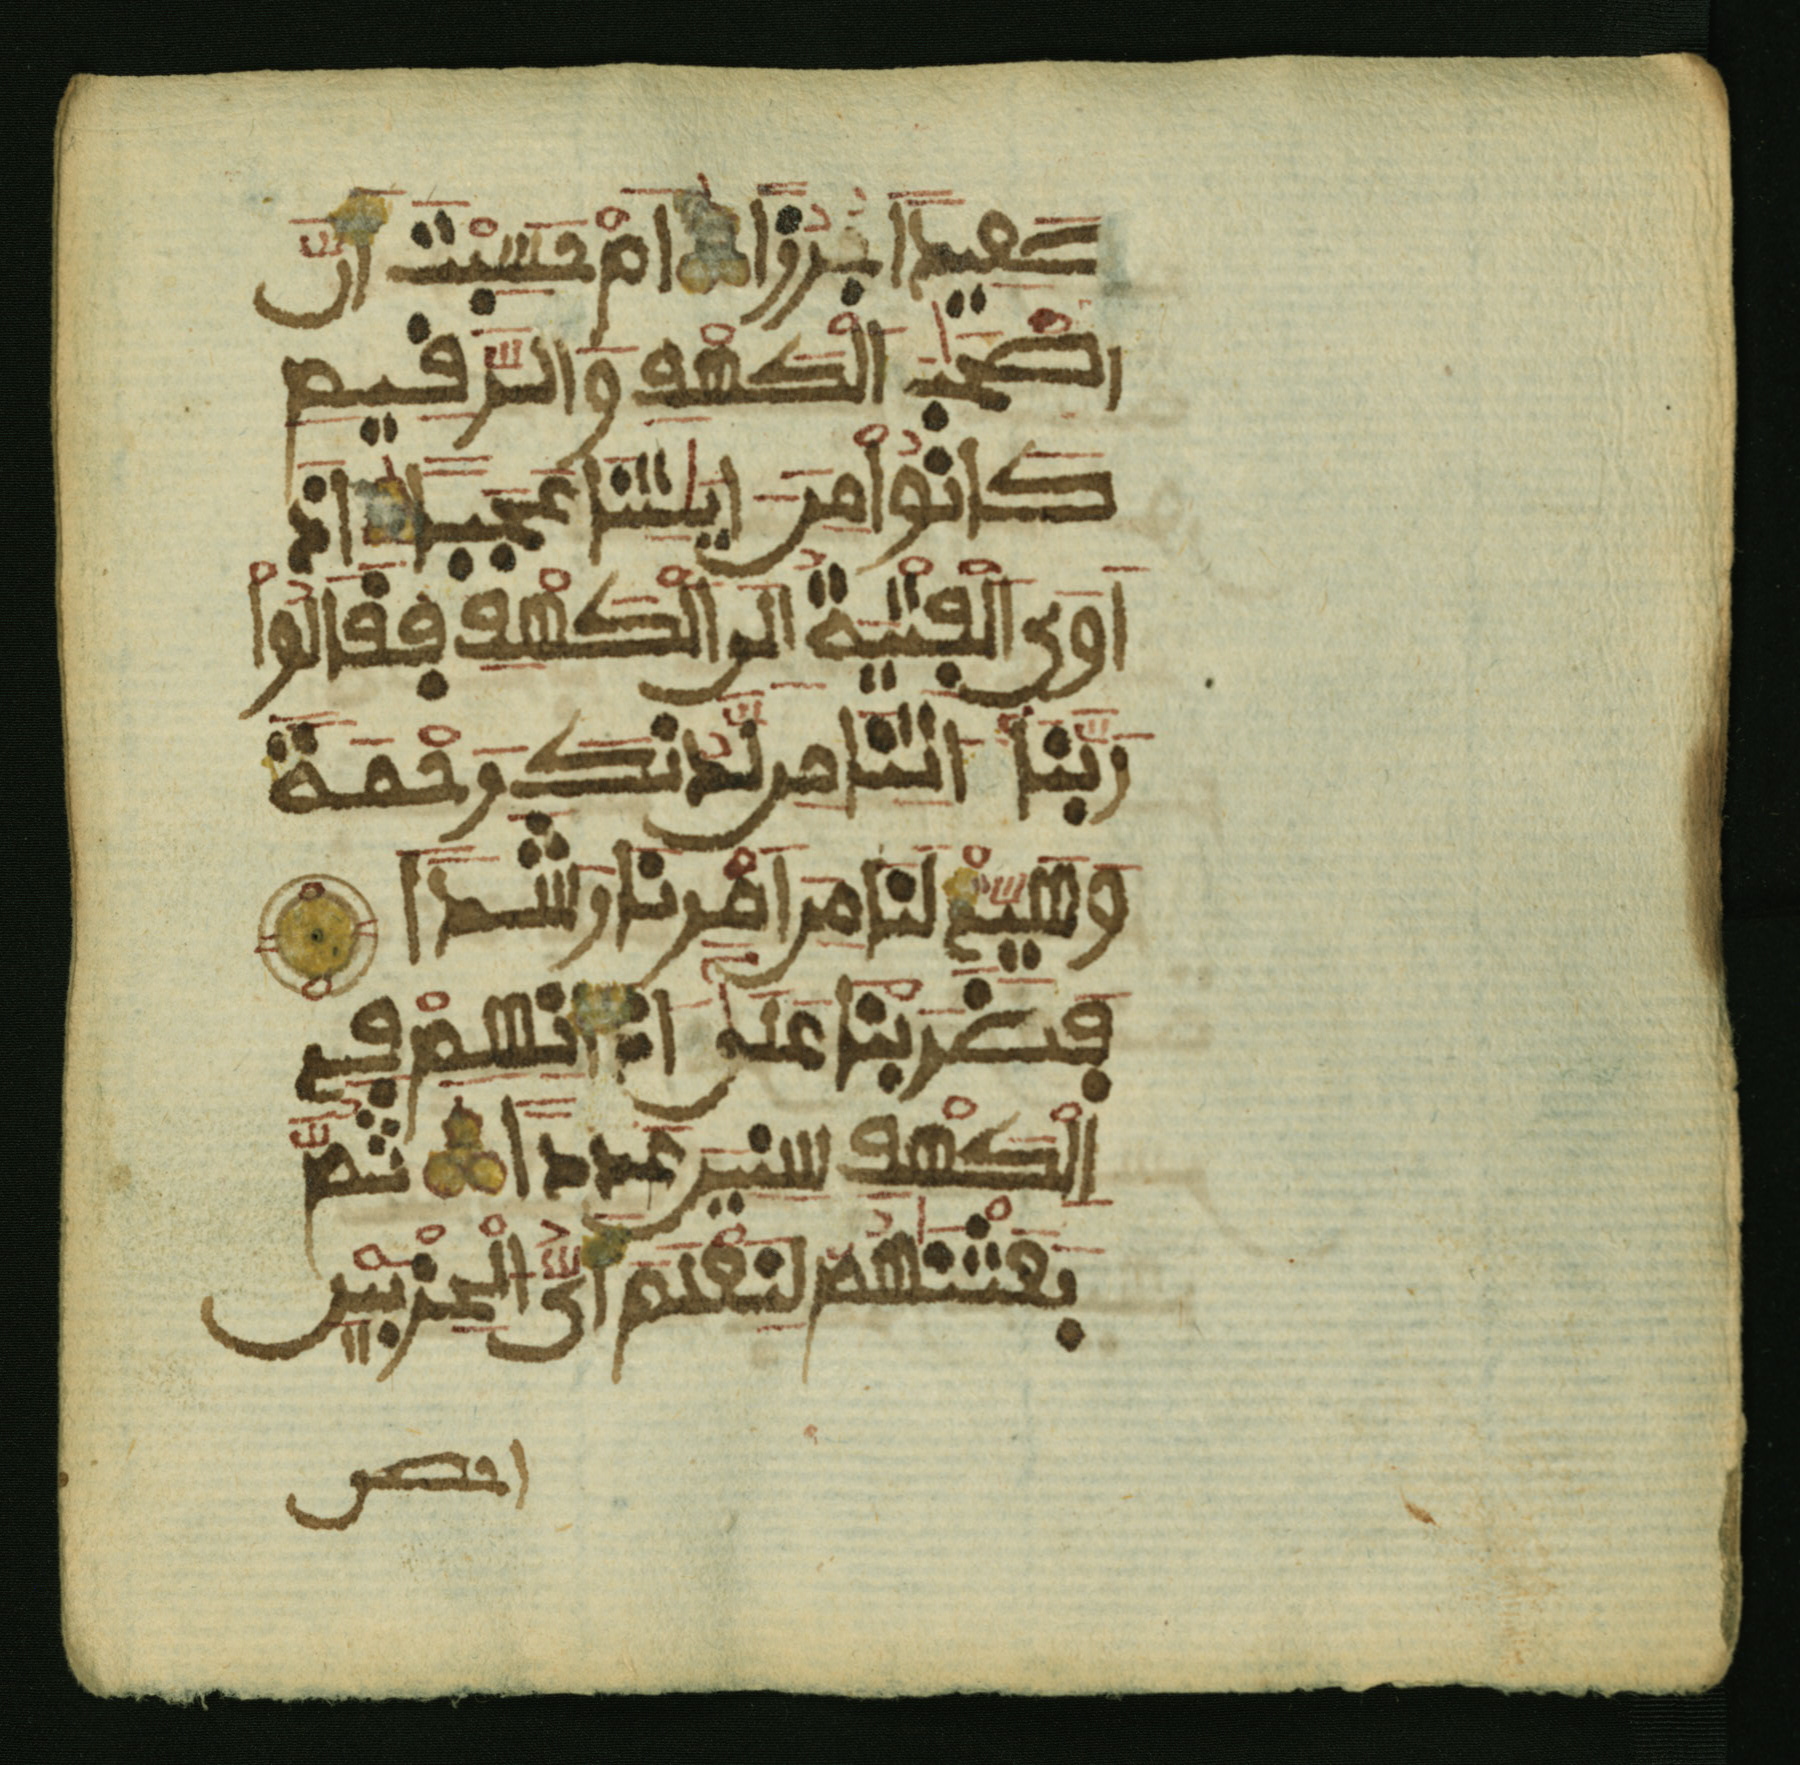 صعيدا جرزا ام حسبت ان
اصحب الكهف والرقيم
كانوا من ايتنا عجبا اذ
اوى الفتية الى الكهف فقالوا
ربنا اتنا من لدنك رحمة
وهيئ لنا من امرنا رشدا
فضربنا على اذانهم في
الكهف سنين عددا ثم
بعثنهم لنعلم اى الحزبين
احصى